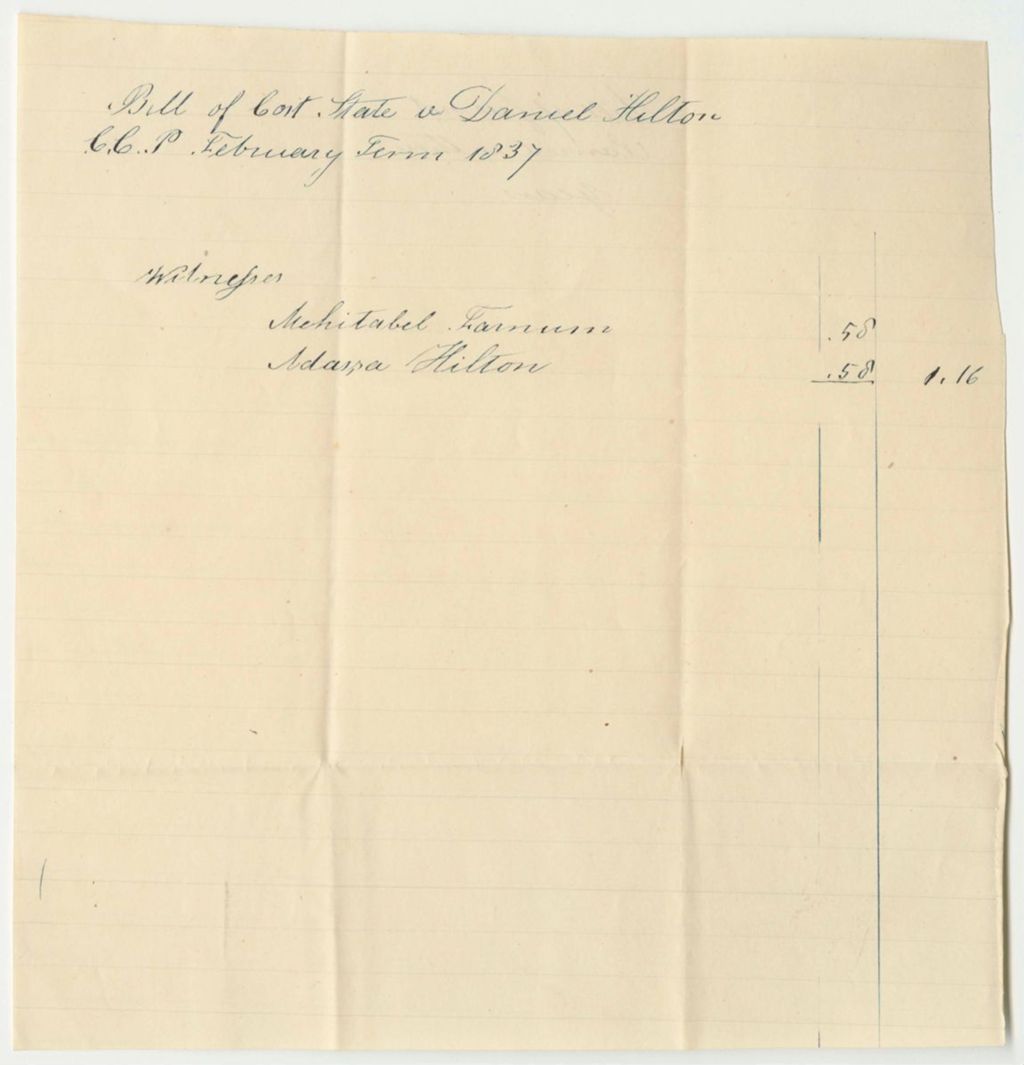 Bill of Cost State v Daniel Hilton
C.C.P February Term 1837
Witnesses
Mehitabel Farnum .58
Hilton .58 1.16